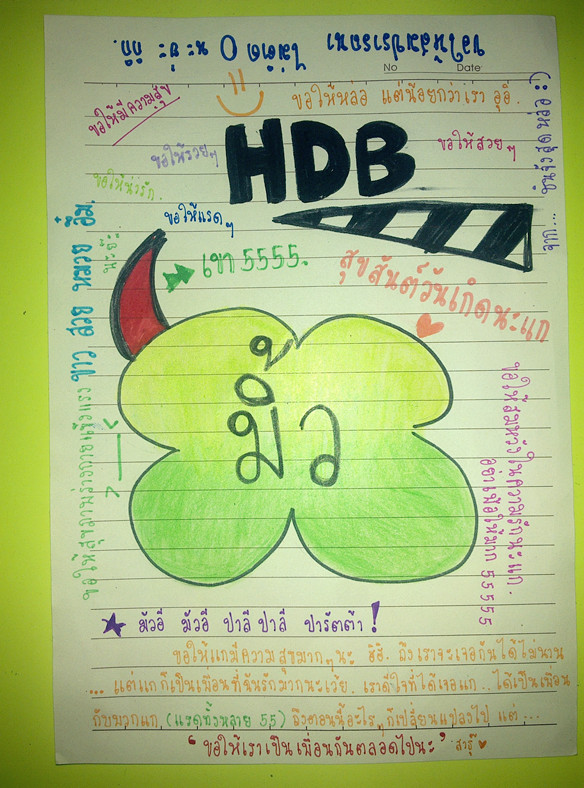 ขอให้สมปรารถนา
ไม่ติด 0 นะ
No
Date
ขอให้มีความสุข
ขอให้หล่อ แต่น้อยกว่าเรา อุอิ.
HDB
ขอให้รวยๆ
ขอให้สวยๆ
ขอให้น่ารัก.
ขอให้แรดๆ
จาก...
สุดหล่อ :)
เขา 5555.
สุขสันต์วันเกิดนะแก
ขาว สวย หมวย อึ๋ม.
นะยะ.
ขอให้สุขภาพร่างกายแข็งแรง
มิ้ว
ขอให้สมหวังในความรักนะแก.
55555
มัวอี มัวอี ปาลีปาลี ปารัตต้า!
ขอให้แกมีความสุขมากๆนะ ฮิฮิ. ถึงเราจะเจอกันได้ไม่นาน
... แต่แกก็เป็นเพื่อนที่ฉันรักมากนะเว้ย. เราดีใจที่ได้เจอแก.. ได้เป็นเพื่อน
กับพวกแก (แรดทั้งหลาย 55) ถึงตอนนี้อะไรๆก็เปลี่ยนแปลงไป แต่...
"ขอให้เราเป็นเพื่อนกันตลอดไปนะ" สาธุ๊